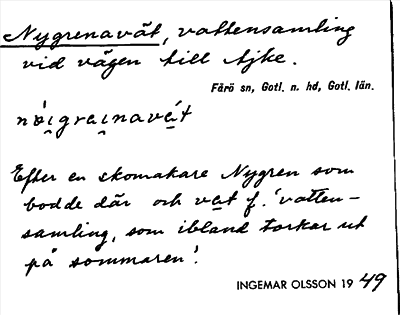 Nygrenavät, vattensamling
vid vägen till Ajke.
Fårö sn, Gotl. n. hd, Gotl. län.
Efter en skomakare Nygren som
bodde där och vat f. 'vatten-
samling, som ibland torkar ut
på sommaren'.
INGEMAR OLSSON 1949